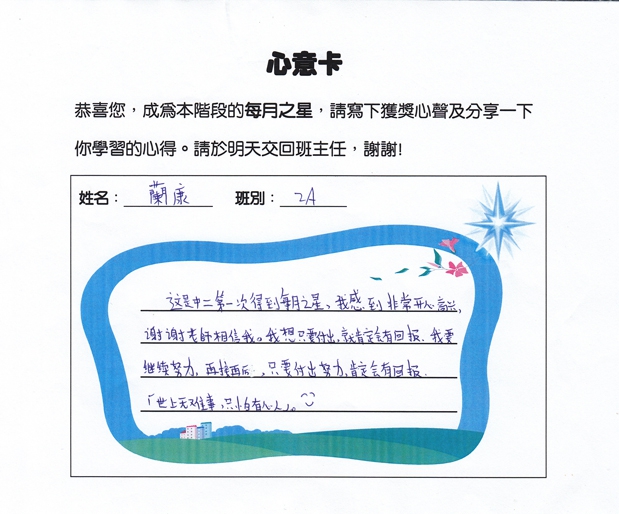 心意卡
恭喜您，成為本階段的每月之星，請寫下獲獎心聲及分享一下
你學習的心得。請於明天交回班主任，謝謝!
姓名： 蘭康 班別： 2A
这是中二第一次得到每月之星，我感到非常开心高兴，
谢谢老师相信我。我想只要付出，就肯定会有回报，我要
继续努力，再接再后…，只要付出努力，肯定会有回报．
「世上无难事，只怕有心人」。